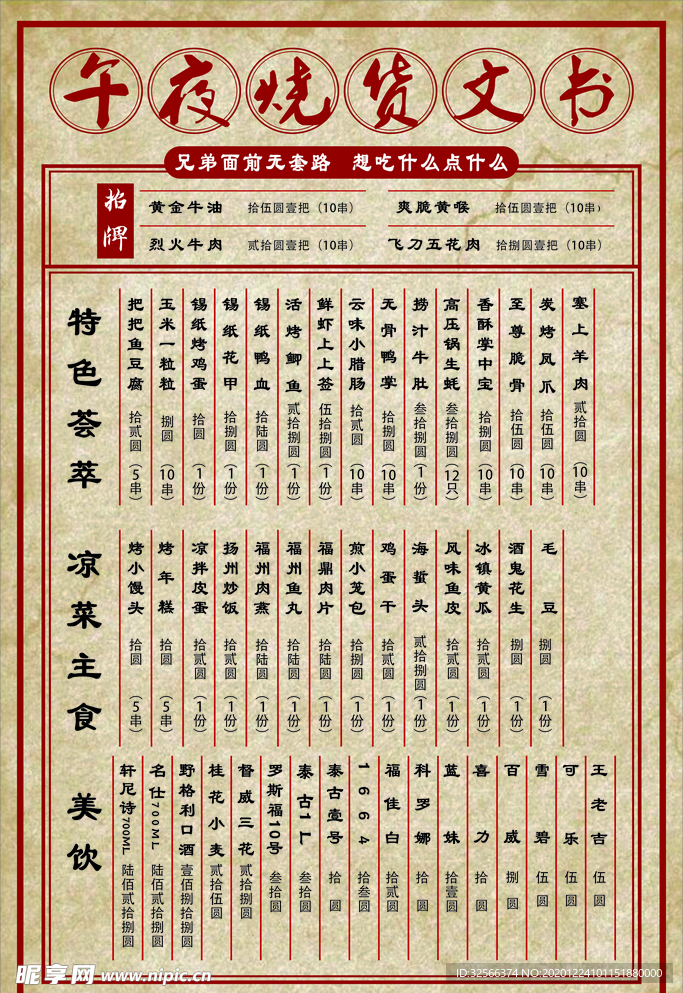 午夜烧货文书
兄弟面前无套路 想吃什么点什么
招牌
黄金牛油 拾伍圆壹把（10串）
爽脆黄喉 拾伍圆壹把（10串）
烈火牛肉 贰拾圆壹把（10串）
飞刀五花肉 拾捌圆壹把（10串）
特色荟萃
把把鱼豆腐 拾贰圆（5串）
玉米一粒粒 捌圆（10串）
锡纸烤鸡蛋 拾圆（1份）
锡纸花甲 拾捌圆（1份）
锡纸鸭血 拾陆圆（1份）
活烤鲫鱼 贰拾捌圆（1份）
鲜虾上上签 伍拾捌圆（1份）
云味小腊肠 拾贰圆（10串）
无骨鸭掌 拾捌圆（10串）
捞汁牛肚 叁拾捌圆（1份）
高压锅生蚝 叁拾捌圆（12只）
香酥掌中宝 拾捌圆（10串）
至尊脆骨 拾伍圆（10串）
炭烤凤爪 拾伍圆（10串）
塞上羊肉 贰拾圆（10串）
凉菜主食
烤小馒头 拾圆（5串）
烤年糕 拾圆（5串）
凉拌皮蛋 拾贰圆（1份）
扬州炒饭 拾贰圆（1份）
福州肉燕 拾陆圆（1份）
福州鱼丸 拾陆圆（1份）
福鼎肉片 拾陆圆（1份）
煎小笼包 拾捌圆（1份）
鸡蛋干 拾贰圆（1份）
海蜇头 贰拾捌圆（1份）
风味鱼皮 拾贰圆（1份）
冰镇黄瓜 拾贰圆（1份）
酒鬼花生 捌圆（1份）
毛豆 捌圆（1份）
美饮
轩尼诗700ML 陆佰贰拾捌圆
名仕700ML 陆佰贰拾捌圆
野格利口酒 壹佰捌拾捌圆
桂花小麦 贰拾伍圆
督威三花 贰拾捌圆
罗斯福10号 叁拾圆
泰古1厂 叁拾圆
泰古壹号 拾圆
1664 拾叁圆
福佳白 拾贰圆
科罗娜 拾圆
蓝妹 拾壹圆
喜力 拾圆
百威 捌圆
雪碧 伍圆
可乐 伍圆
王老吉 伍圆
昵享网 www.nipic.cn
ID:32566374 NO:20201224101151880000